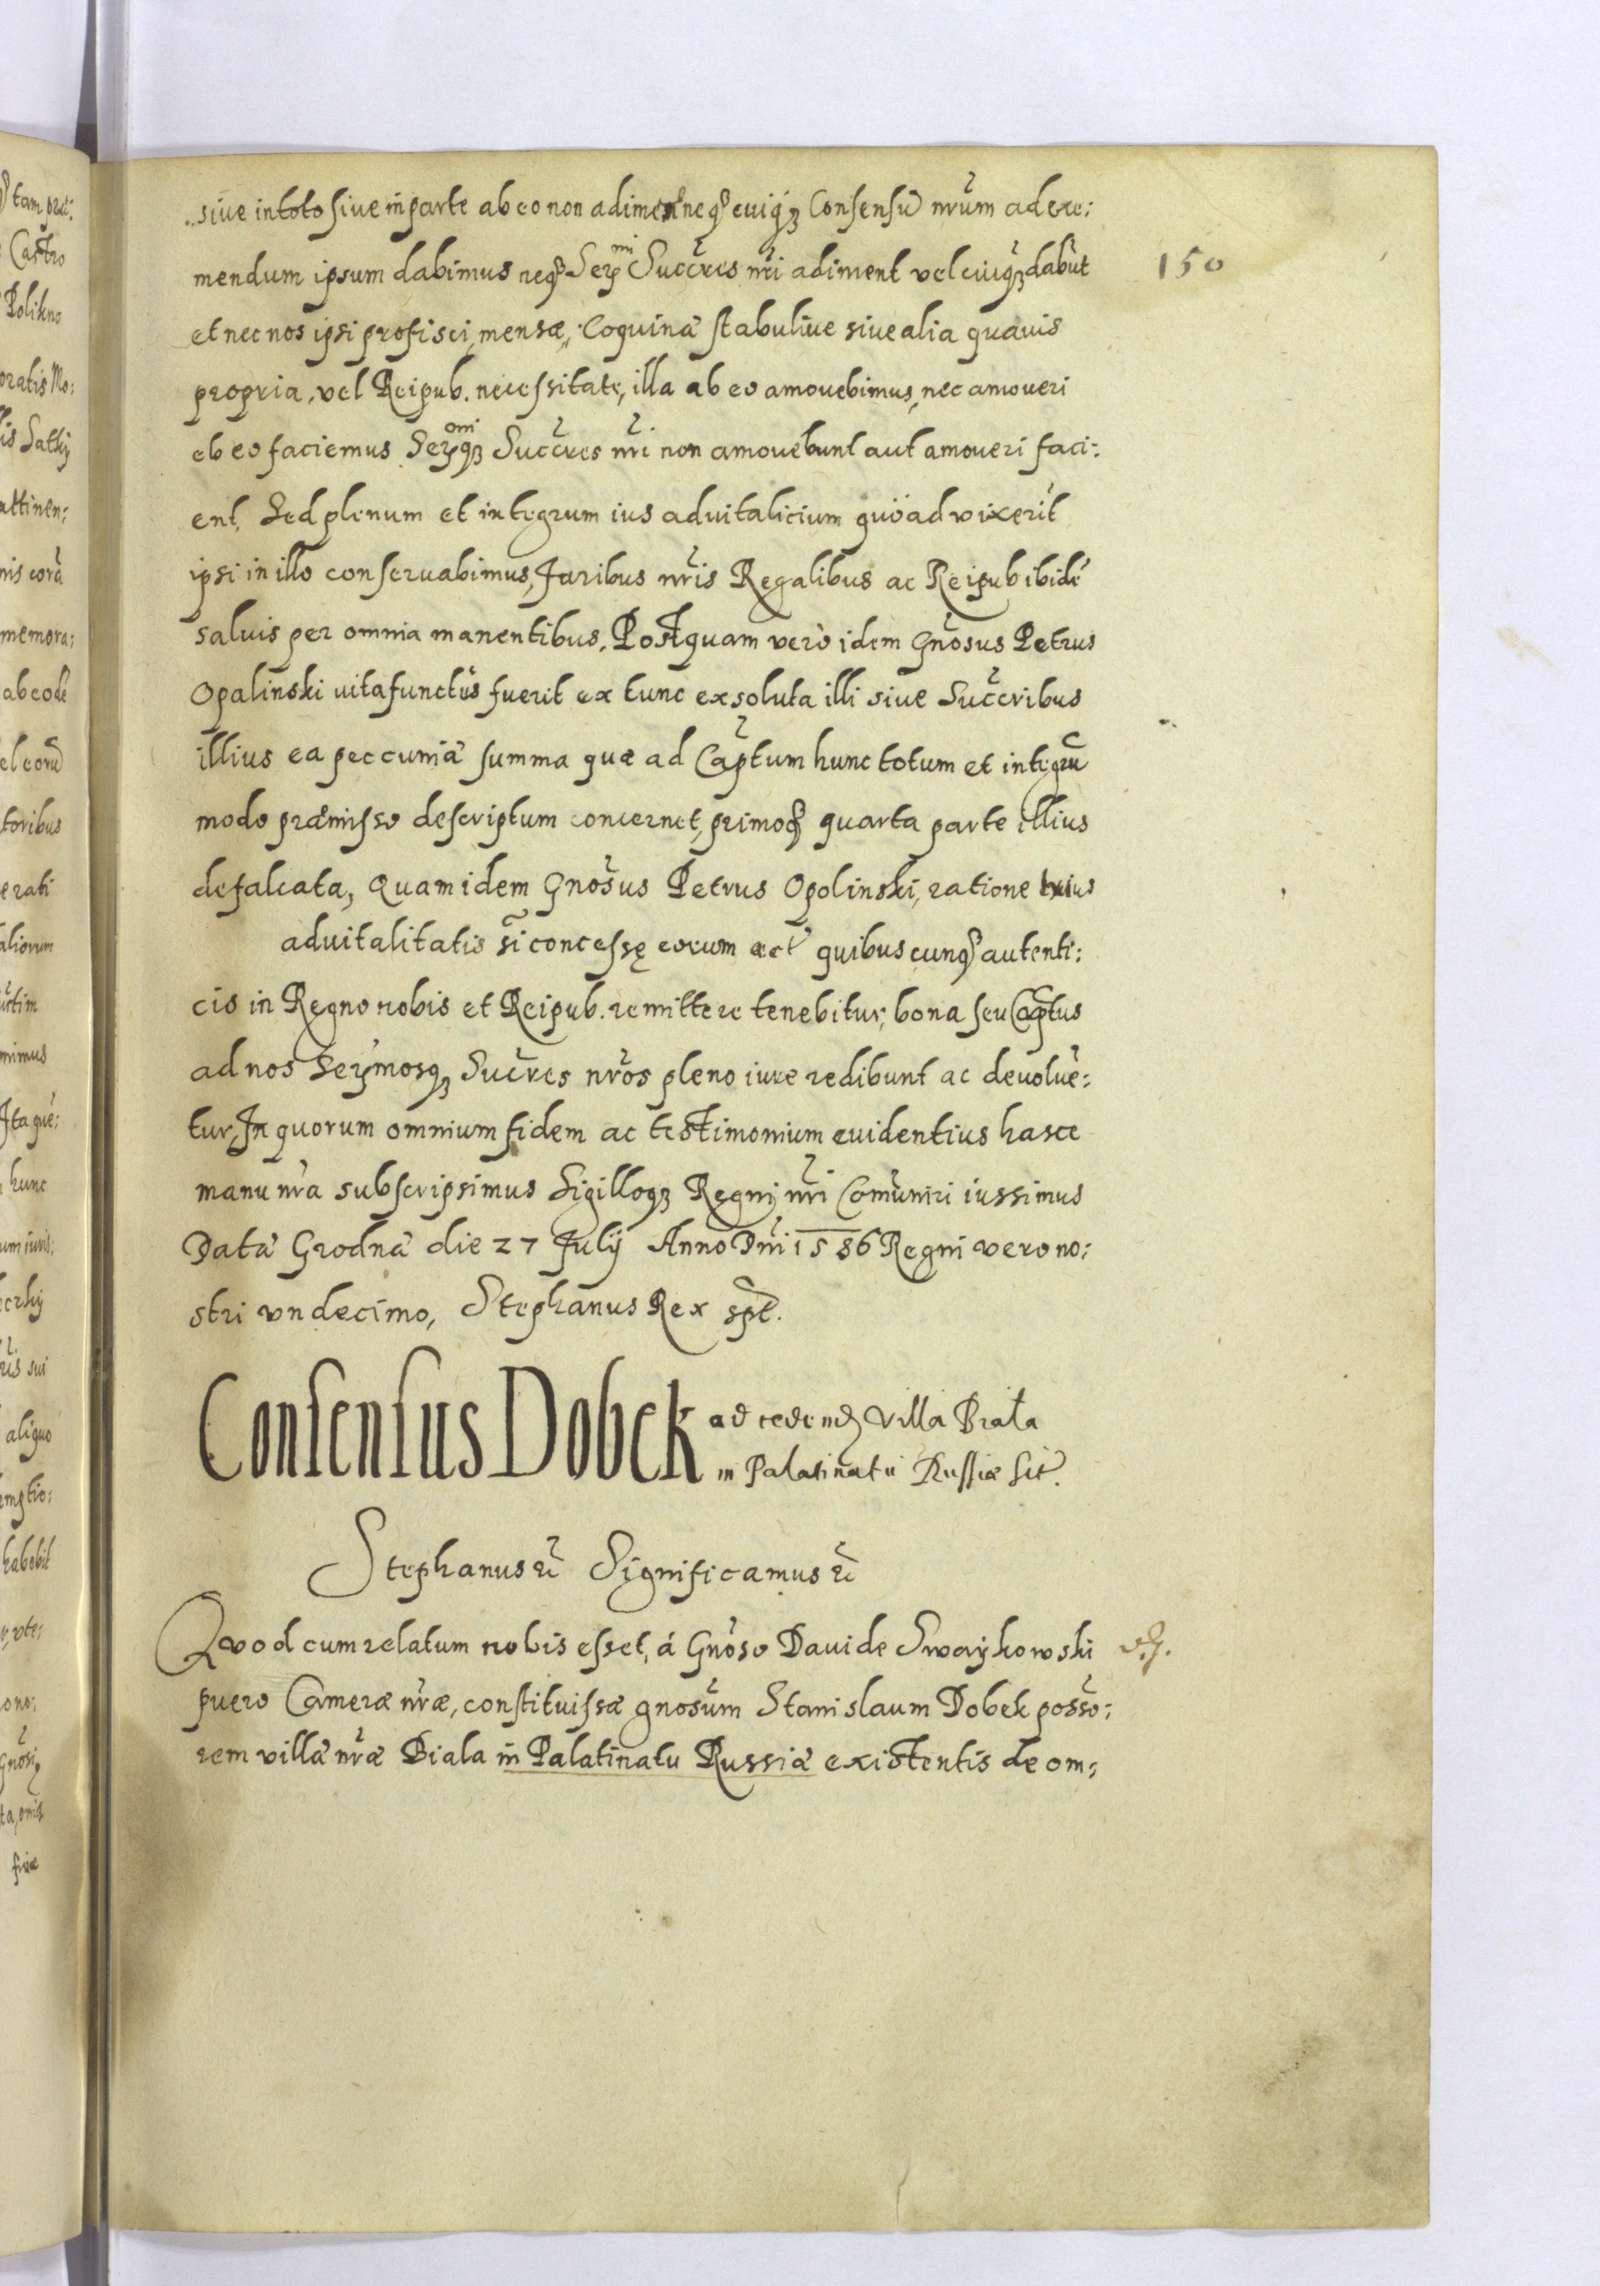 siue in toto siue in parte ab eo non adimem neq cuiq3 Consensũ nr̃um ad exi:
mendum ipsum dabimus neq Serẽmi Succr̃es nr̃i adiment vel cuiq3 dabũt
et nec nos ipsi pro fisci, mensæ, Coquinæ stabuliue siue alia quauis
propria, vel Reipub. necessitate, illa ab eo amouebimus, nec amoueri
ab eo faciemus Serẽmiq3 Succr̃es nr̃i non amouebunt aut amoueri faci:
ent, Sed plenum et integrum ius aduitalicium quoad vixerit
ipsi in illo conseruabimus, Juribus nr̃is Regalibus ac Reipub ibidẽ
saluis per omnia manentibus. Postquam verò idem Gñosus Petrus
Opalinski vita functus fuerit ex tunc exsoluta illi siue Succr̃ibus
illius ea peccuniæ summa quæ ad Cap̃tum hunc totum et integrũ
modo præmisso descriptum concernet, primoq quarta parte illius
defalcata, Quam idem Gnos̃us Petrus Opolinski, ratione huius
aduitalitatis s̃i concessę eorum act quibuscunq autenti:
cis in Regno nobis et Reipub. remittere tenebitur, bona seu Cap̃tus
ad nos Serẽmosq3 Sucr̃es nr̃os pleno iure redibunt ac deuoluẽ:
tur, In quorum omnium fidem ac testimonium euidentius hasce
manu nr̃a subscripsimus Sigilloq3 Regni nr̃i Com̃uniri iussimus
Datæ Grodnæ die 27 Julij Anno Dñi 1586 Regni vero no:
stri vndecimo, Stephanus Rex spt̃.
150
Consensus Dobek ad cedend villa Biała
in Palatinatu Russiæ Sit.
Stephanus ec̃ Significamus ec̃
Quod cum relatum nobis esset, á Gnõso Dauide Swaykowski
puero Cameræ nr̃æ, constituissæ gnosũm Stanislaum Dobek posso:
rem villæ nr̃æ Biala in Palatinatu Russiæ existentis de om: